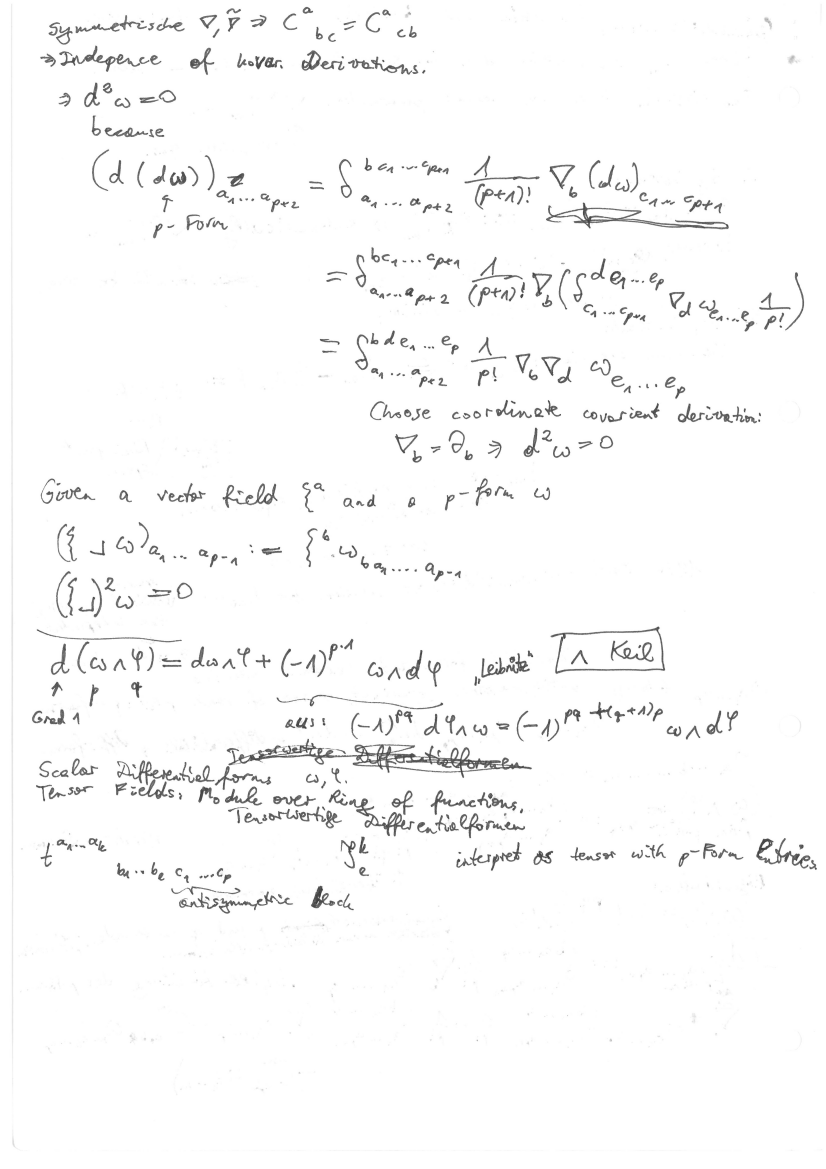 symmetrische ∇, ∇̃ ⇒ C^a_bc = C^a_cb
⇒ Indepence of kovar. Derivations.
⇒ d²ω = 0
because
(d(dω))_a₁...a_p+2 = δ^bc₁...c_p+1_a₁...a_p+2 1/(p+1)! ∇_b (dω)_c₁...c_p+1
p-Form
= δ^bc₁...c_p+1_a₁...a_p+2 1/(p+1)! ∇_b (δ^de₁...e_p_c₁...c_p+1 ∇_d ω_e₁...e_p 1/p!)
= δ^bde₁...e_p_a₁...a_p+2 1/p! ∇_b ∇_d ω_e₁...e_p
Choose coordinate covarient derivation:
∇_b = ∂_b ⇒ d²ω = 0
Given a vector field ξ^a and a p-form ω
(ξ ⌟ ω)_a₁...a_p-1 := ξ^b ω_ba₁....a_p-1
(ξ⌟)² ω = 0
d(ω∧φ) = dω∧φ + (-1)^p·1 ω∧dφ „Leibnitz" ∧ Keil
↑ p q
Grad 1 aus: (-1)^pq dφ∧ω = (-1)^pq+(q+1)p ω∧dφ
Tensorwertige Differentialformen
Scalar Differential forms ω, φ.
Tensor Fields: Module over Ring of functions.
Tensorwertige Differentialformen
t^a₁...a_k_b₁...b_l c₁...c_p 𝒥^k_l interpret as tensor with p-Form Entries
antisymmetric block